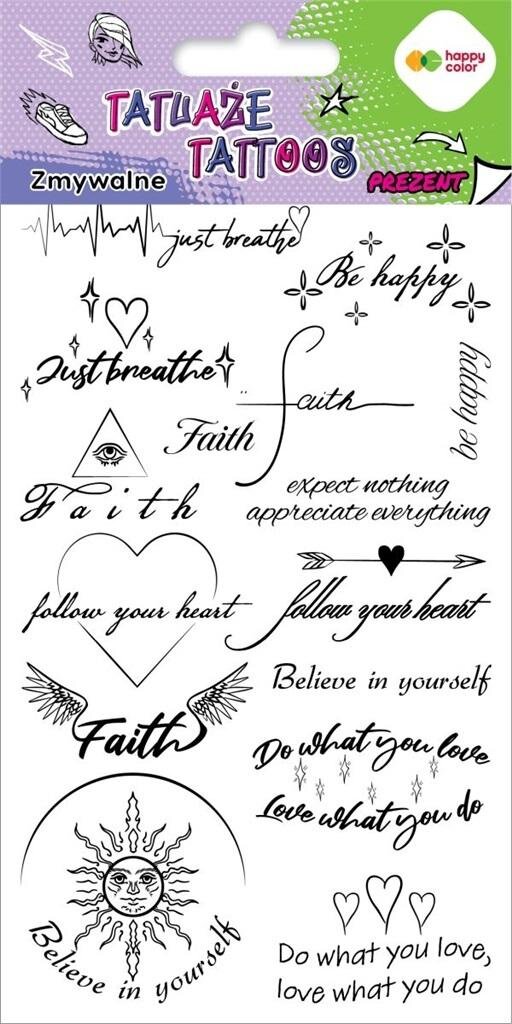 happy
color
TATUAŻE
TATTOOS
Zmywalne
PREZENT
just breathe
Be happy
Just breathe
be happy
faith
Faith
Faith
expect nothing
appreciate everything
follow your heart
follow your heart
Believe in yourself
Faith
Do what you love
Love what you do
Believe in yourself
Do what you love,
love what you do